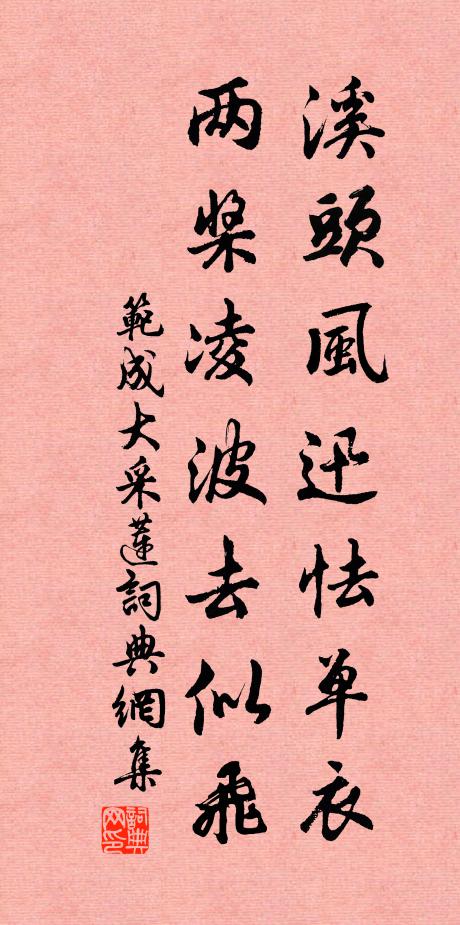 溪頭風迅怯单衣
两槳凌波去似飛
範成大采蓮詞典網集
詞典網印